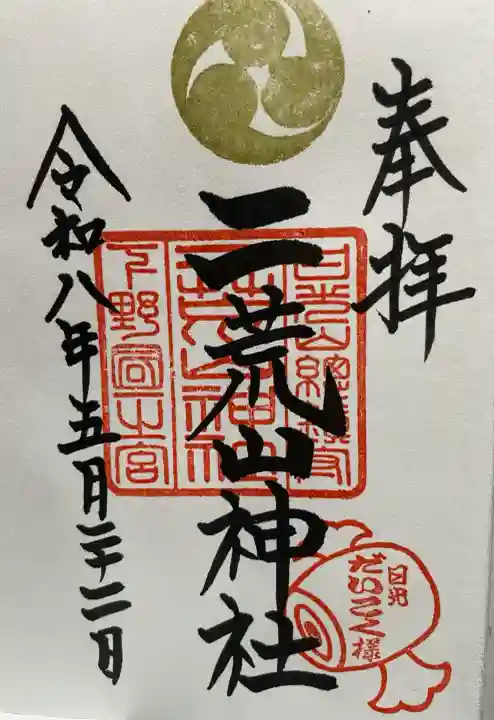 奉拝
日光山総鎮守
二荒山神社
下野国一之宮
日光
だいこく様
令和八年五月二十二日